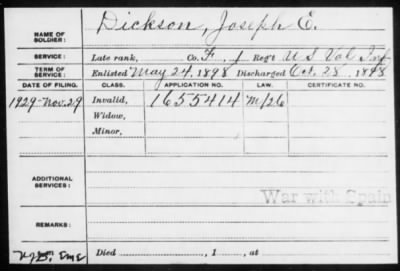 NAME OF SOLDIER: Dickson, Joseph E.
SERVICE: Late rank, Co. F, 1 Reg't U S Vol Inf
TERM OF SERVICE: Enlisted May 24, 1898 Discharged Oct. 28, 1898
DATE OF FILING. CLASS. APPLICATION NO. LAW. CERTIFICATE NO.
1929-Nov.29 Invalid, 1655414 M/26
Widow,
Minor,
ADDITIONAL SERVICES:
War with Spain
REMARKS:
Died , 1 , at